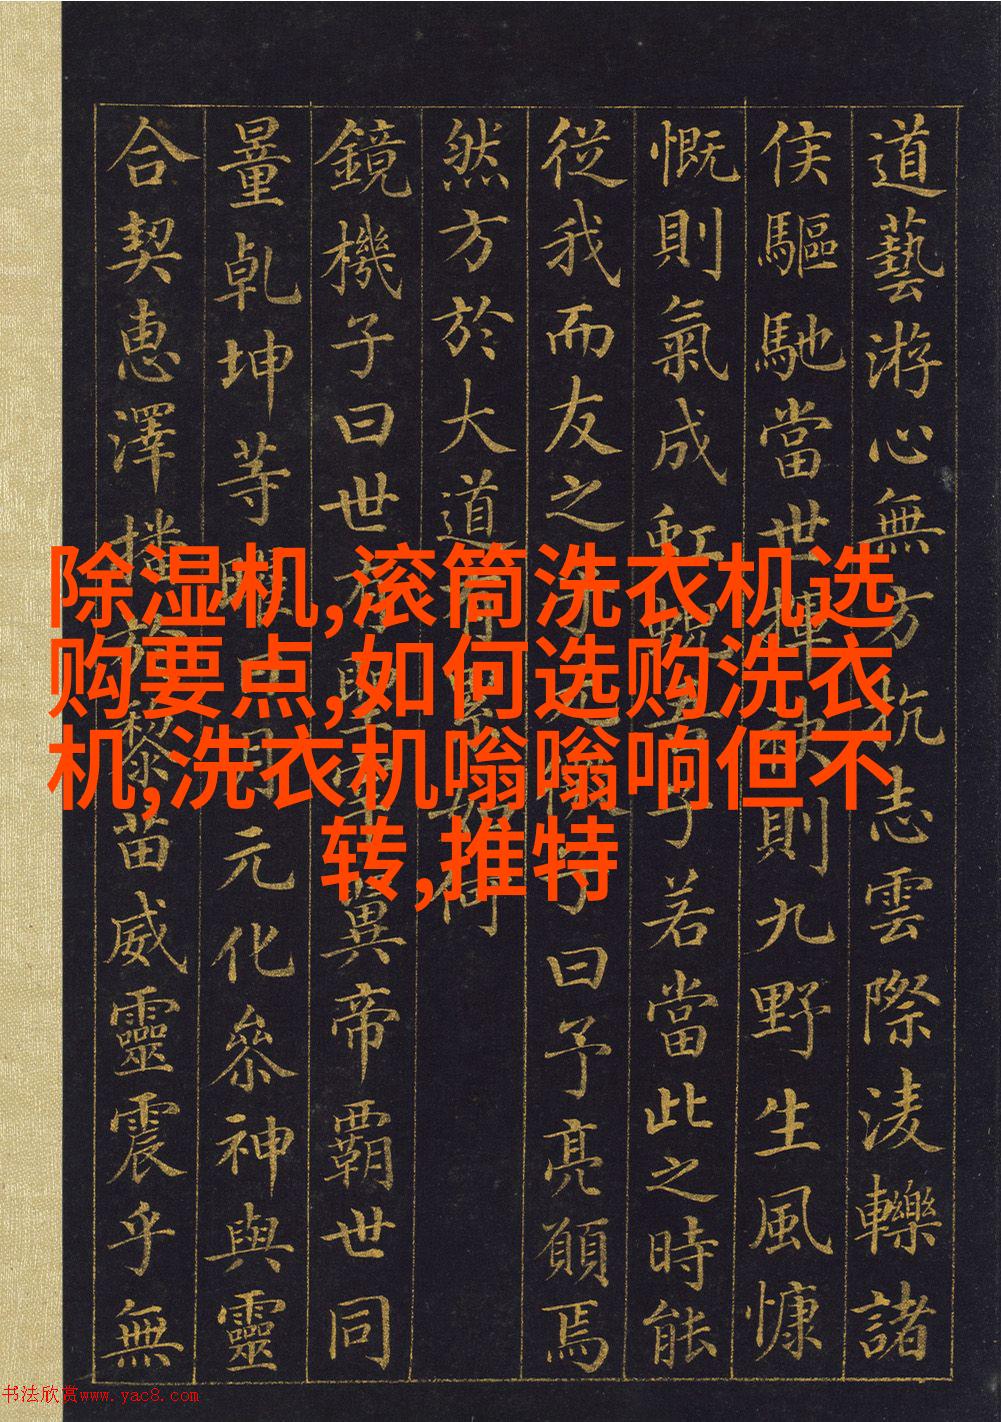 道藝游心無方抗志雲際淩轢諸
侯驅馳當世揮袂則九野生風慷
慨則氣成虹蜺吾子若當此之時能
從我而友之乎玄微子曰予亮願焉
然方於大道有累如何
鏡機子曰世有聖宰翼帝霸世同
量乾坤等曜日月元化參神與靈
合契惠澤播於黎苗威靈震乎無
除湿机,滚筒洗衣机选
购要点,如何选购洗衣
机,洗衣机嗡嗡响但不
转,推特
书法欣赏www.yac8.com